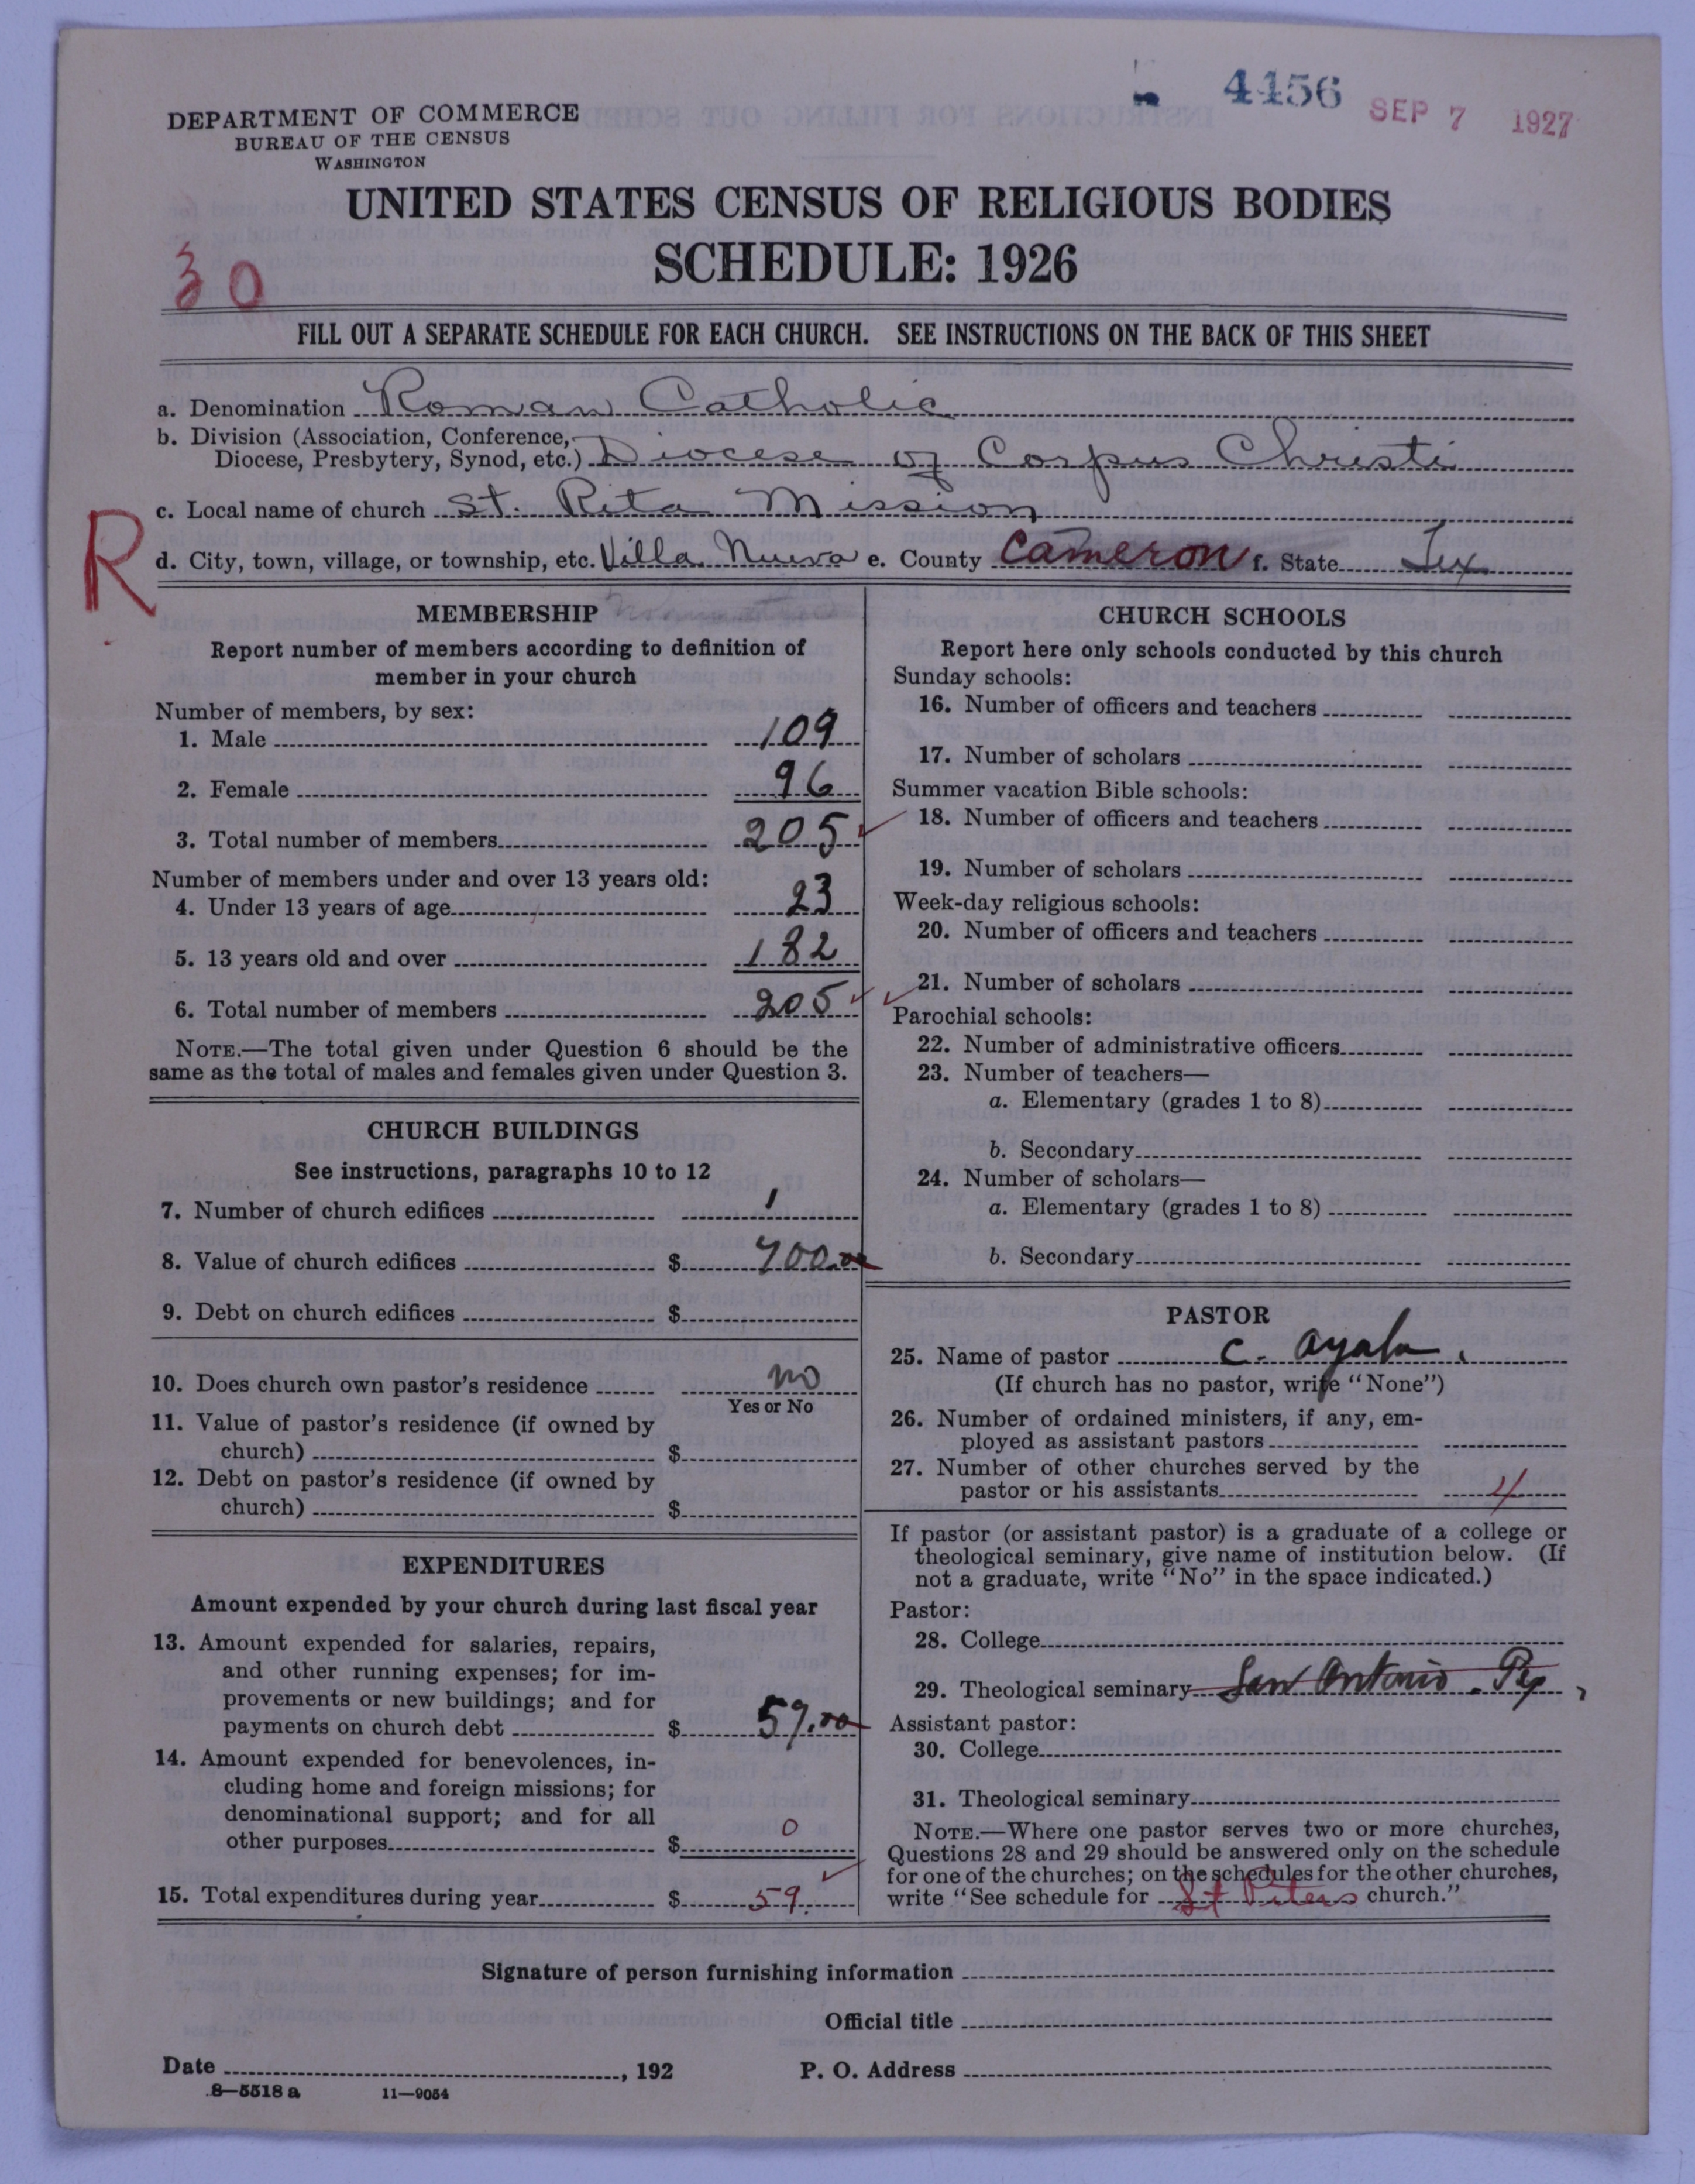 4456 SEP 7 1927
DEPARTMENT OF COMMERCE
BUREAU OF THE CENSUS
WASHINGTON
UNITED STATES CENSUS OF RELIGIOUS BODIES
SCHEDULE: 1926
30
FILL OUT A SEPARATE SCHEDULE FOR EACH CHURCH. SEE INSTRUCTIONS ON THE BACK OF THIS SHEET
a. Denomination Roman Catholic
b. Division (Association, Conference,
Diocese, Presbytery, Synod, etc.) Diocese of Corpus Christi
c. Local name of church St. Rita Mission
R
d. City, town, village, or township, etc. Villa Nueva e. County Cameron f. State Tex
MEMBERSHIP
Report number of members according to definition of
member in your church
Number of members, by sex:
1. Male 109
2. Female 96
3. Total number of members 205
Number of members under and over 13 years old:
4. Under 13 years of age 23
5. 13 years old and over 182
6. Total number of members 205
NOTE.—The total given under Question 6 should be the
same as the total of males and females given under Question 3.
CHURCH BUILDINGS
See instructions, paragraphs 10 to 12
7. Number of church edifices 1
8. Value of church edifices $ 700.00
9. Debt on church edifices $
10. Does church own pastor's residence no
Yes or No
11. Value of pastor's residence (if owned by
church) $
12. Debt on pastor's residence (if owned by
church) $
EXPENDITURES
Amount expended by your church during last fiscal year
13. Amount expended for salaries, repairs,
and other running expenses; for im-
provements or new buildings; and for
payments on church debt $ 59.00
14. Amount expended for benevolences, in-
cluding home and foreign missions; for
denominational support; and for all
other purposes $ 0
15. Total expenditures during year $ 59.
CHURCH SCHOOLS
Report here only schools conducted by this church
Sunday schools:
16. Number of officers and teachers
17. Number of scholars
Summer vacation Bible schools:
18. Number of officers and teachers
19. Number of scholars
Week-day religious schools:
20. Number of officers and teachers
21. Number of scholars
Parochial schools:
22. Number of administrative officers
23. Number of teachers—
a. Elementary (grades 1 to 8)
b. Secondary
24. Number of scholars—
a. Elementary (grades 1 to 8)
b. Secondary
PASTOR
25. Name of pastor C. Ayala.
(If church has no pastor, write "None")
26. Number of ordained ministers, if any, em-
ployed as assistant pastors
27. Number of other churches served by the
pastor or his assistants 4
If pastor (or assistant pastor) is a graduate of a college or
theological seminary, give name of institution below. (If
not a graduate, write "No" in the space indicated.)
Pastor:
28. College
29. Theological seminary San Antonio.
Assistant pastor:
30. College
31. Theological seminary
NOTE.—Where one pastor serves two or more churches,
Questions 28 and 29 should be answered only on the schedule
for one of the churches; on the schedules for the other churches,
write "See schedule for St Peters church."
Signature of person furnishing information
Official title
Date , 192 P. O. Address
8—5518 a 11—9054